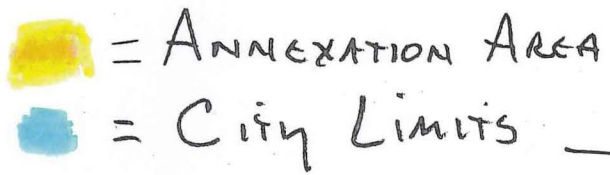 = ANNEXATION AREA
= City Limits